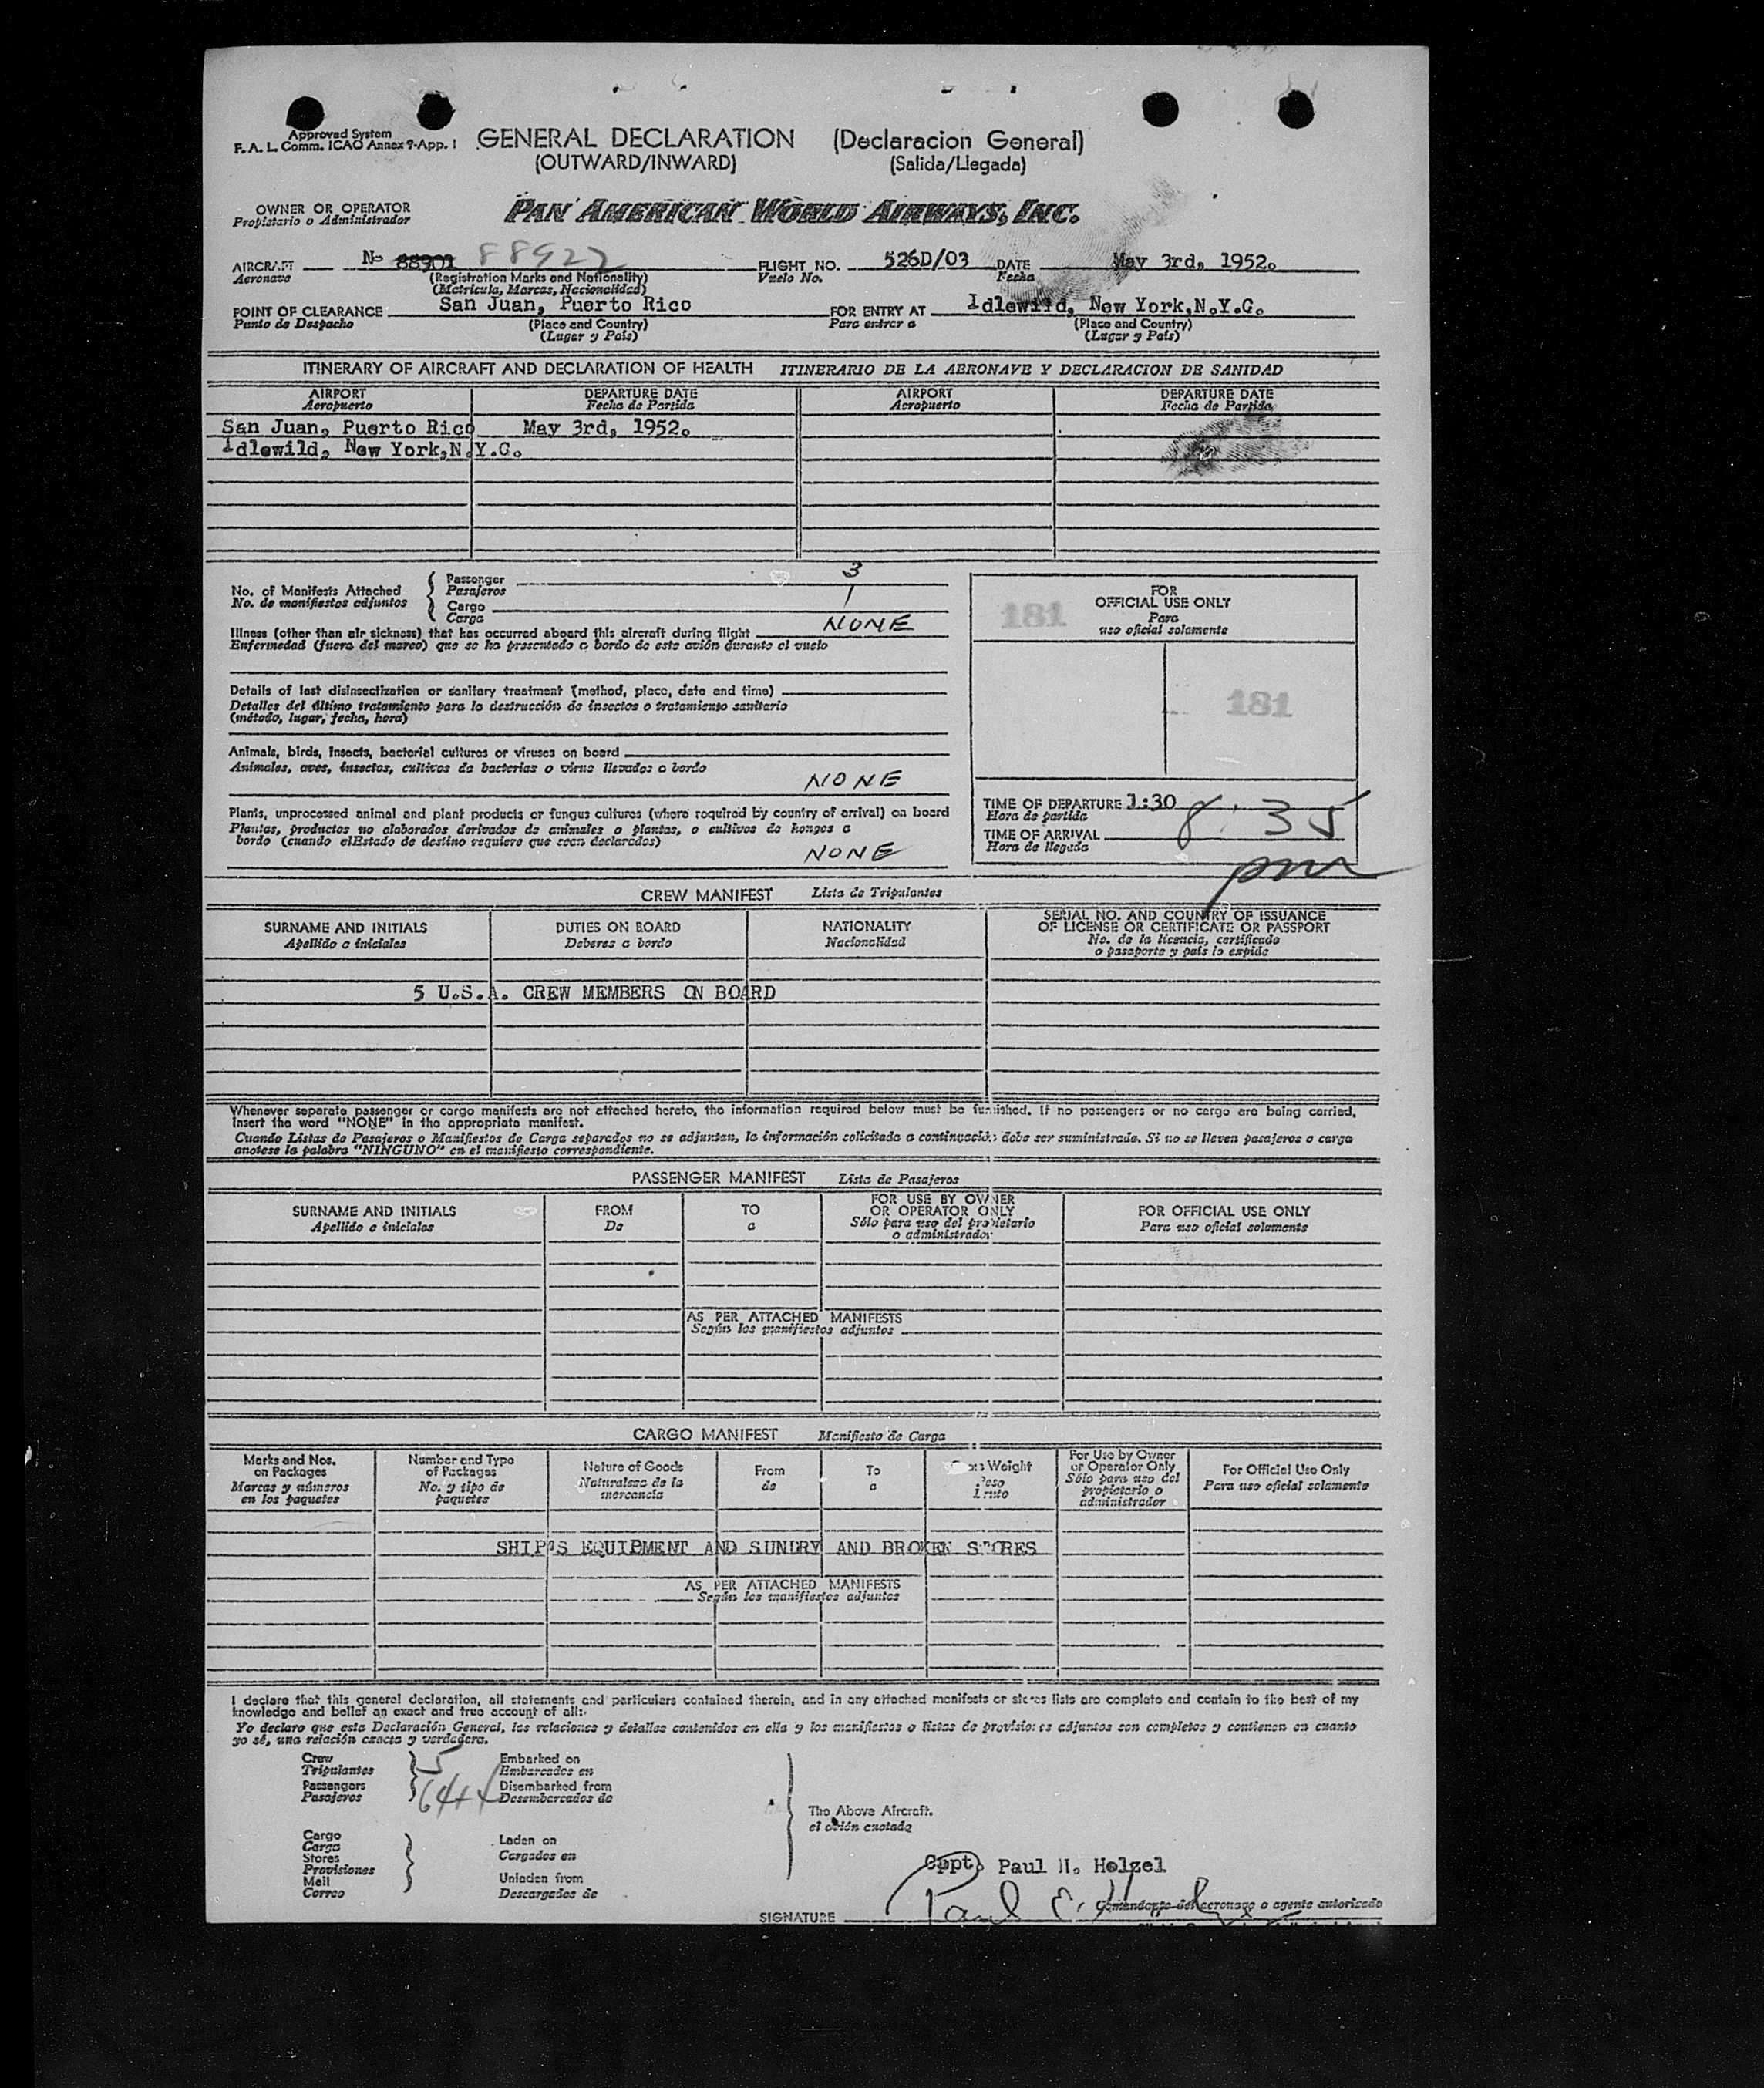 Approved System
F. A. L. Comm. ICAO Annex 9-App. 1
GENERAL DECLARATION (Declaracion General)
(OUTWARD/INWARD) (Salida/Llegada)
OWNER OR OPERATOR
Propietario o Administrador
PAN AMERICAN WORLD AIRWAYS, INC.
AIRCRAFT No 88901 88922 FLIGHT NO. 526D/03 DATE May 3rd, 1952.
Aeronave (Registration Marks and Nationality) Vuelo No. Fecha
(Matricula, Marcas, Nacionalidad)
POINT OF CLEARANCE San Juan, Puerto Rico FOR ENTRY AT Idlewild, New York,N.Y.C.
Punto de Despacho (Place and Country) Para entrar a (Place and Country)
(Lugar y País) (Lugar y País)
ITINERARY OF AIRCRAFT AND DECLARATION OF HEALTH ITINERARIO DE LA AERONAVE Y DECLARACION DE SANIDAD
AIRPORT DEPARTURE DATE AIRPORT DEPARTURE DATE
Aeropuerto Fecha de Partida Aeropuerto Fecha de Partida
San Juan, Puerto Rico May 3rd, 1952.
Idlewild, New York,N.Y.C.
No. of Manifests Attached
No. de manifiestos adjuntos
Passenger 3
Pasajeros
Cargo 1
Carga
Illness (other than air sickness) that has occurred aboard this aircraft during flight NONE
Enfermedad (fuera del mareo) que se ha presentado a bordo de este avión durante el vuelo
Details of last disinsectization or sanitary treatment (method, place, date and time)
Detalles del último tratamiento para la destrucción de insectos o tratamiento sanitario
(método, lugar, fecha, hora)
Animals, birds, insects, bacterial cultures or viruses on board
Animales, aves, insectos, cultivos de bacterias o virus llevados a bordo
NONE
Plants, unprocessed animal and plant products or fungus cultures (where required by country of arrival) on board
Plantas, productos no elaborados derivados de animales o plantas, o cultivos de hongos a
bordo (cuando elEstado de destino requiere que sean declarados)
NONE
181
FOR
OFFICIAL USE ONLY
Para
uso oficial solamente
181
TIME OF DEPARTURE 1:30
Hora de partida
TIME OF ARRIVAL 8:35
Hora de llegada
pm
CREW MANIFEST Lista de Tripulantes
SURNAME AND INITIALS DUTIES ON BOARD NATIONALITY SERIAL NO. AND COUNTRY OF ISSUANCE
OF LICENSE OR CERTIFICATE OR PASSPORT
Apellido e iniciales Deberes a bordo Nacionalidad No. de la licencia, certificado
o pasaporte y país lo expide
5 U.S.A. CREW MEMBERS ON BOARD
Whenever separate passenger or cargo manifests are not attached hereto, the information required below must be furnished. If no passengers or no cargo are being carried,
insert the word "NONE" in the appropriate manifest.
Cuando Listas de Pasajeros o Manifiestos de Carga separados no se adjuntan, la información solicitada a continuación debe ser suministrada. Si no se llevan pasajeros o carga
anotese la palabra "NINGUNO" en el manifiesto correspondiente.
PASSENGER MANIFEST Lista de Pasajeros
SURNAME AND INITIALS FROM TO FOR USE BY OWNER
OR OPERATOR ONLY FOR OFFICIAL USE ONLY
Apellido e iniciales De a Sólo para uso del propietario
o administrador Para uso oficial solamente
AS PER ATTACHED MANIFESTS
Según los manifiestos adjuntos
CARGO MANIFEST Manifiesto de Carga
Marks and Nos.
on Packages
Marcas y números
en los paquetes
Number and Type
of Packages
No. y tipo de
paquetes
Nature of Goods
Naturaleza de la
mercancia
From
de
To
a
Weight
Peso
Bruto
For Use by Owner
or Operator Only
Sólo para uso del
propietario o
administrador
For Official Use Only
Para uso oficial solamente
SHIP'S EQUIPMENT AND SUNDRY AND BROKEN STORES
AS PER ATTACHED MANIFESTS
Según los manifiestos adjuntos
I declare that this general declaration, all statements and particulars contained therein, and in any attached manifests or stores lists are complete and contain to the best of my
knowledge and belief an exact and true account of all:-
Yo declaro que esta Declaración General, las relaciones y detalles contenidos en ella y los manifiestos o listas de provisiones adjuntos son completos y contienen en cuanto
yo sé, una relación exacta y verdadera.
Crew 5 Embarked on
Tripulantes Embarcados en
Passengers 64+4 Disembarked from
Pasajeros Desembarcados de
The Above Aircraft.
el avión anotado
Cargo
Carga Laden on
Stores Cargados en
Provisiones
Mail Unladen from
Correo Descargados de
Capt. Paul H. Holzel
Comandante del aeronave o agente autorizado
SIGNATURE Paul E.